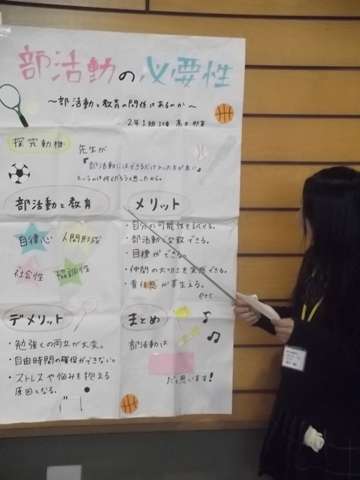 部活動の必要性
～部活動と教育の関係はあるのか～
探究動機
先生が
部活動と教育
自律心
人間形成
社会性
協調性
メリット
・自分の可能性を試せる。
・部活動で発散できる。
・目標ができる。
・仲間の大切さを実感できる。
・責任感が芽生える。
デメリット
・勉強との両立が大変。
・自由時間の確保ができない。
・ストレスや悩みを抱える
原因となる。
まとめ
部活動は
だと思います!